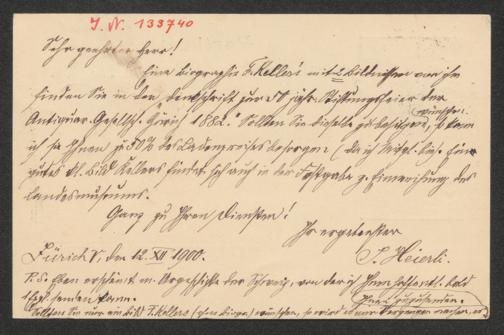 I. N. 133740
Sehr geehrter Herr!
Eine Biographie F. Keller's mit 2 Bildnissen von ihm
finden Sie in der Denkschrift zur 50 jähr. Stiftungsfeier der
Antiquar. Gesellsch. Zürich 1882. Sollten Sie dieselbe zu besitzen wünschen, so kann
ich sie Ihnen zu 50% des Ladenpreises besorgen (da ich Mitgl. bin). Ein
gutes kl. Bild Kellers findet sich auch in der Festgabe z. Einweihung des
Landesmuseums.
Ganz zu Ihren Diensten!
Ihr ergebenster
J. Heierli.
Zürich V, den 12. XII 1900.
P.S. Eben erscheint m. Urgeschichte der Schweiz, von der ich Ihnen hoffentl. bald
senden kann.
Sollten Sie nur ein Bild F. Kellers (ohne Biogr.) wünschen, so